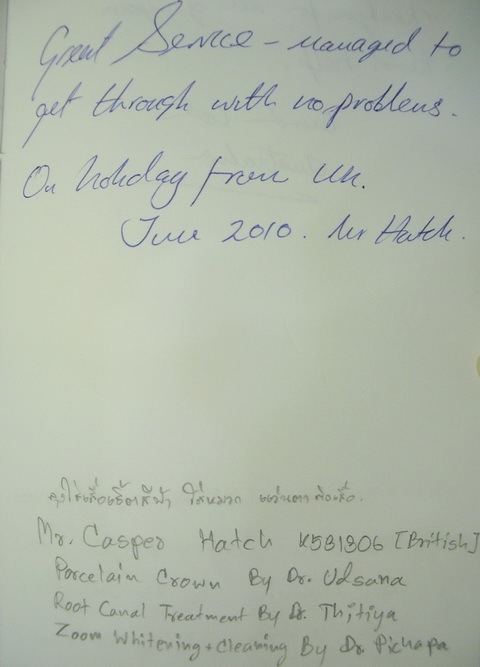 Great Service - managed to
get through with no problems.
On holiday from UK.
June 2010. Mr Hatch.
ลุงใส่เสื้อเชิ้ตสีฟ้า ใส่หมวก แว่นตา
Mr. Casper Hatch K581306 [British]
Porcelain Crown By Dr. Udsana
Root Canal Treatment By Dr. Thitiya
Zoom Whitening + Cleaning By Dr Pichapa